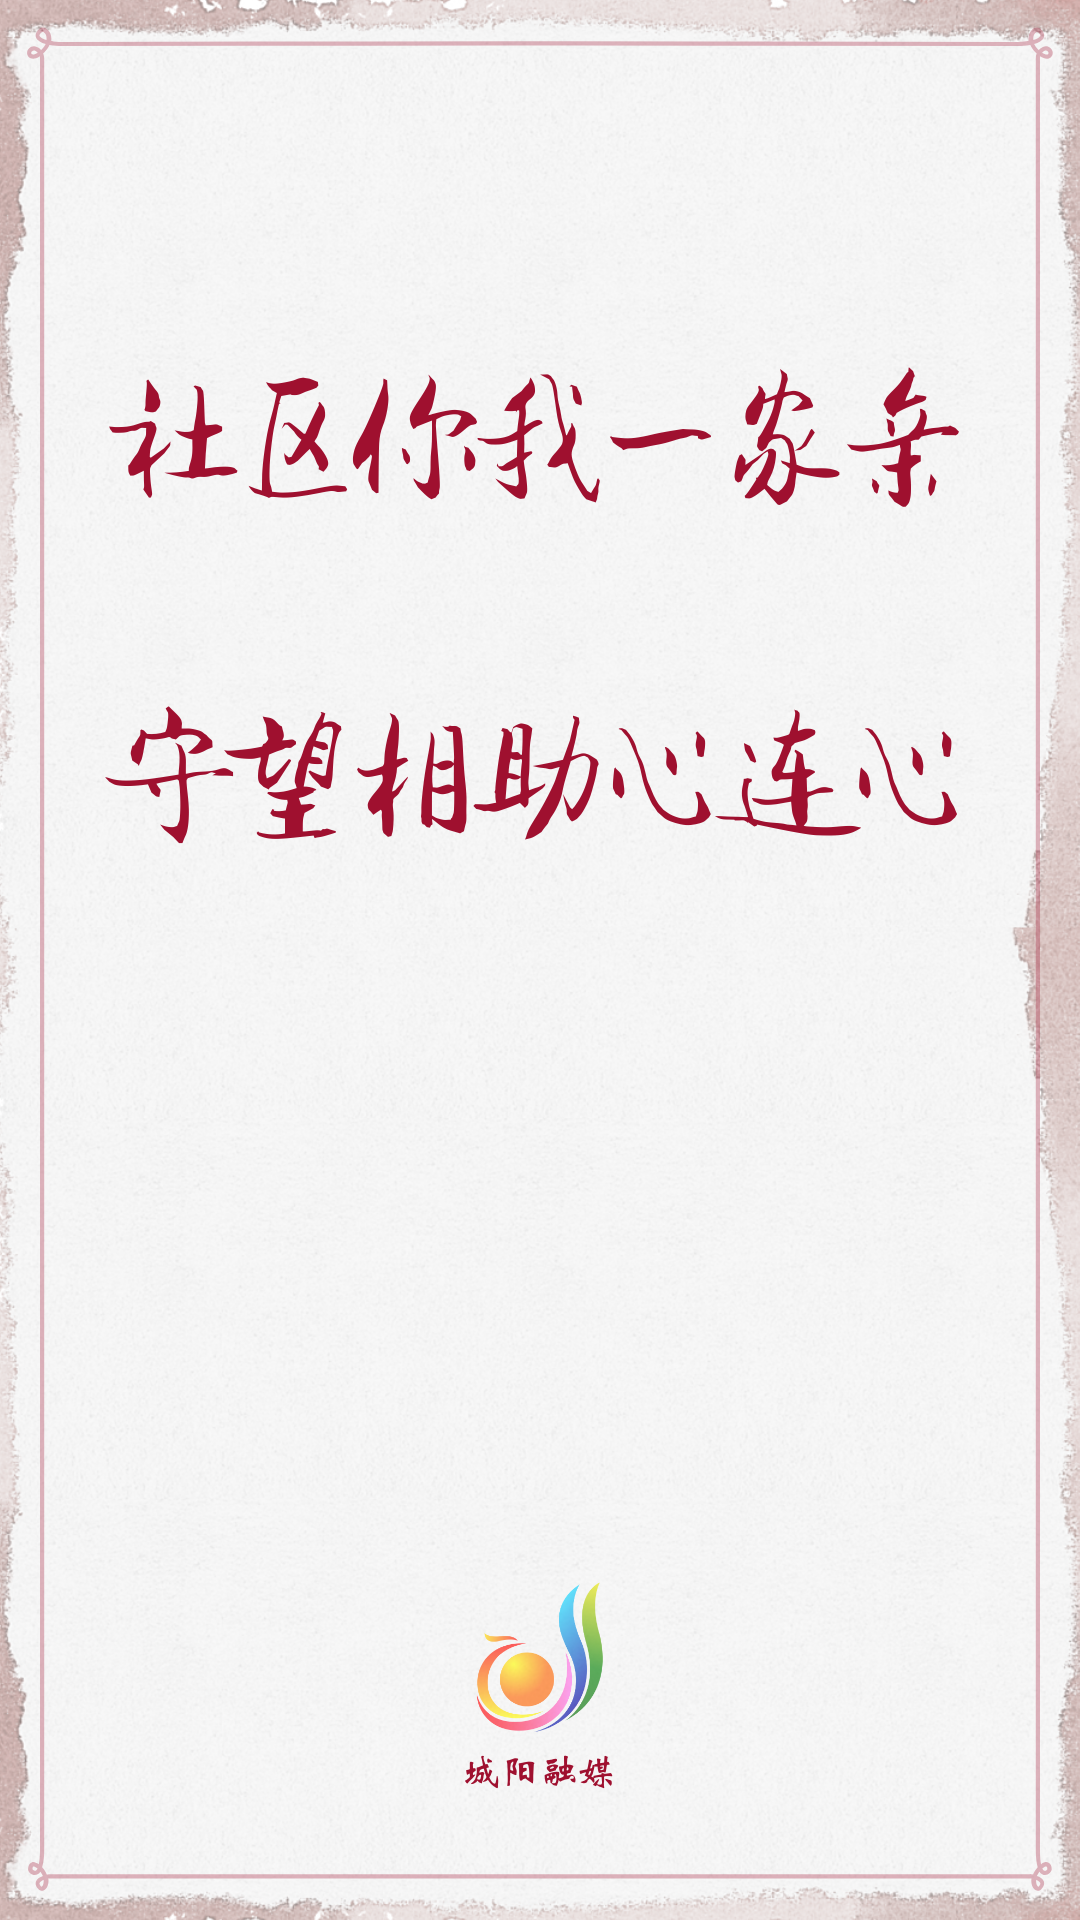 社区你我一家亲
守望相助心连心
城阳融媒